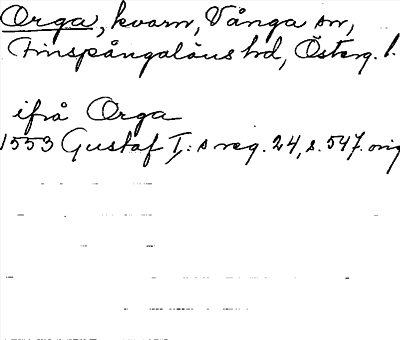 Orga, kvarn, Vånga sn,
Finspångaläns hd, Österg. l.
ifrå Orga
1553 Gustaf I:s reg. 24, s. 547. orig